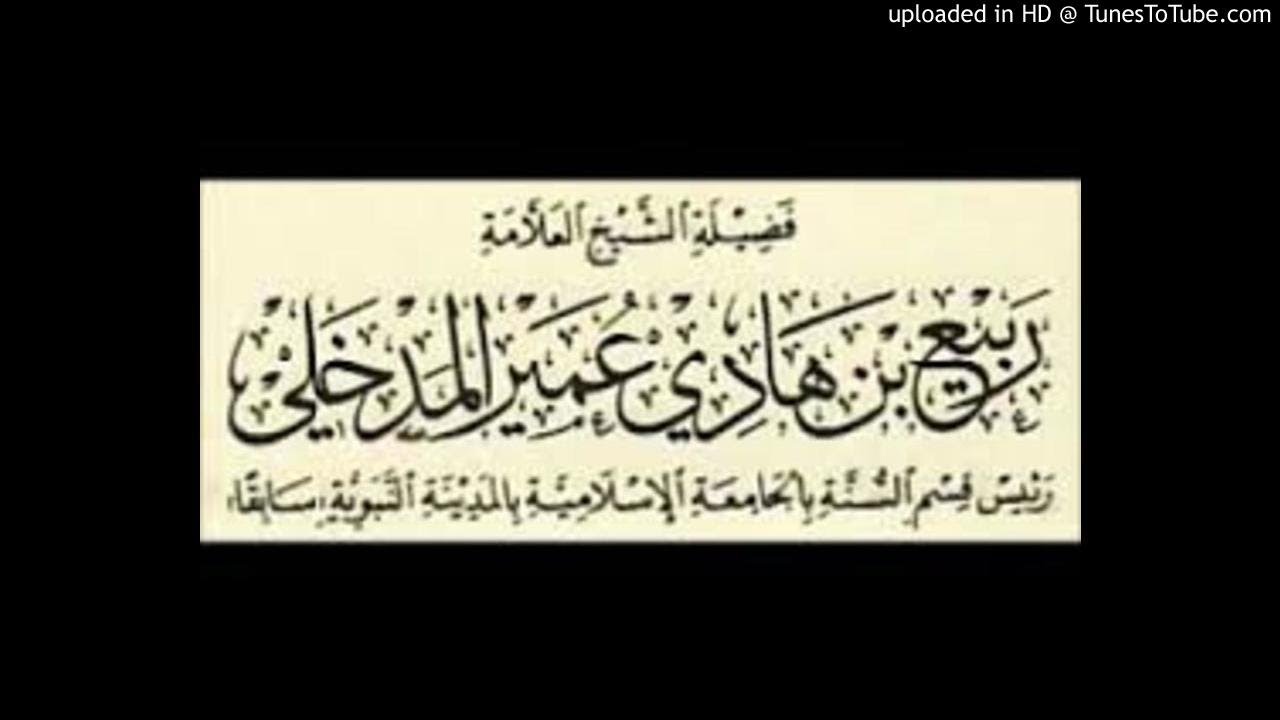 uploaded in HD @ TunesToTube.com
فَضِيْلَةِ ٱلشَّيْخِ ٱلعَلَّامَةِ
رَبِيْعِ بْنِ هَادِيْ عُمَيْر المَدْخَلِيْ
رَئِيْسِ قِسْمِ ٱلسُّنَّةِ بِالجَامِعَةِ ٱلإِسْلَامِيَّةِ بِالمَدِيْنَةِ ٱلنَّبَوِيَّةِ (سَابِقًا)